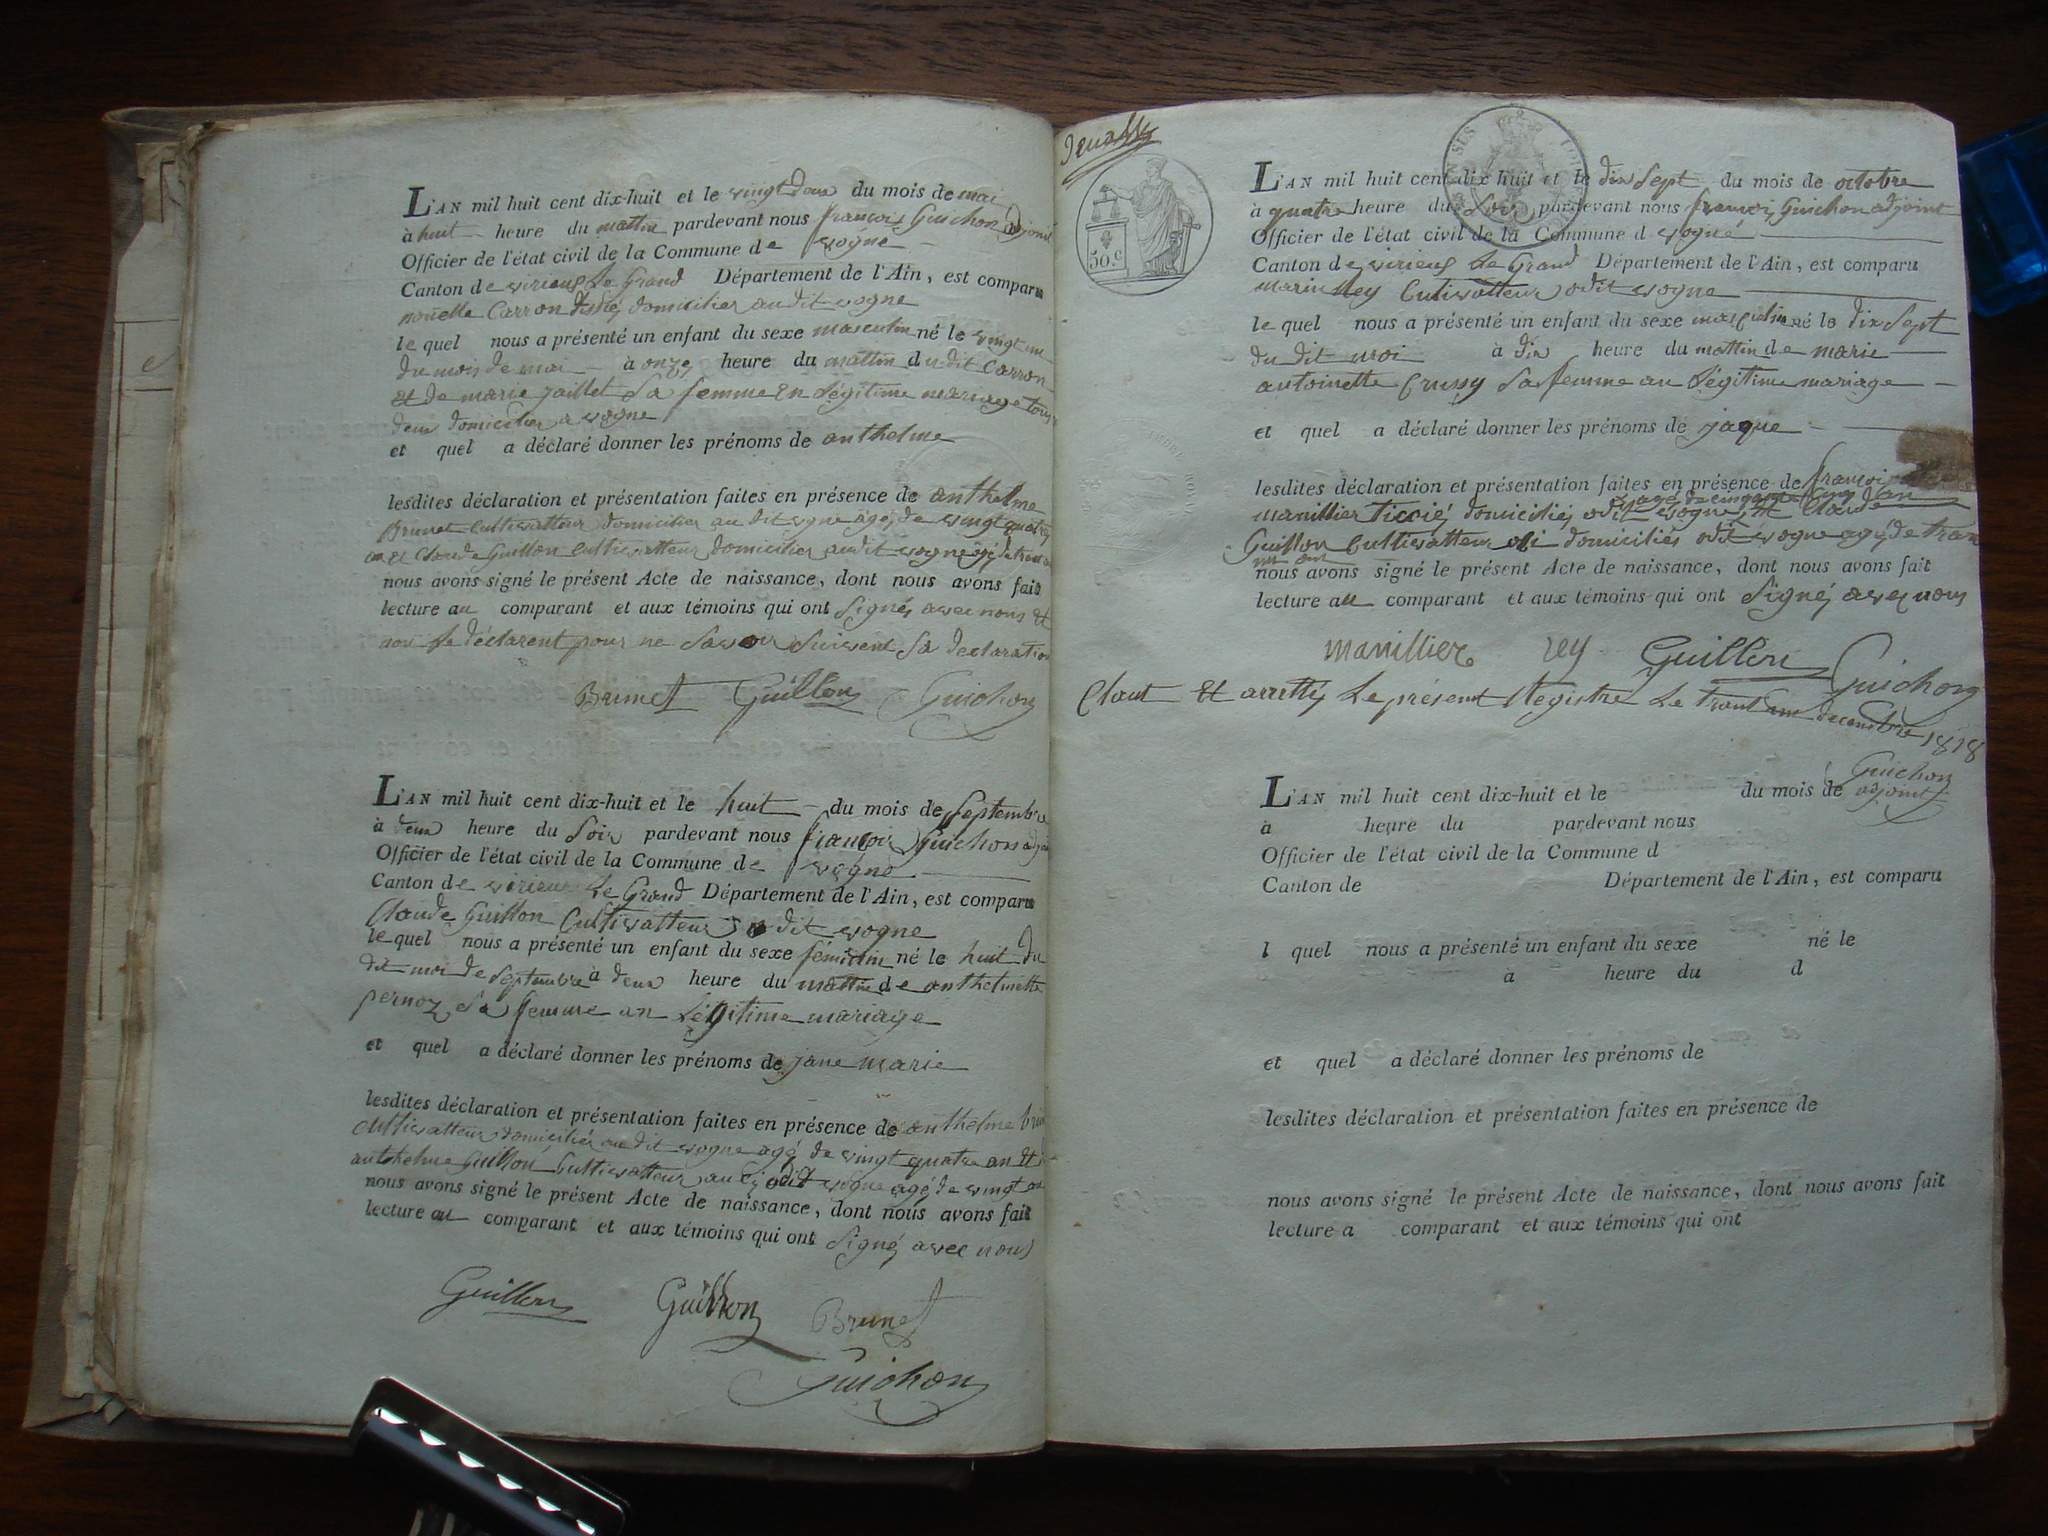 L'AN mil huit cent dix-huit et le vingt deux du mois de mai
à huit heure du mattin pardevant nous françois Guichon adjoint
Officier de l'état civil de la Commune de vogne
Canton de virieux Le Grand Département de l'Ain, est comparu
nouelle Carron domicilier au dit vogne
le quel nous a présenté un enfant du sexe masculin né le vingt un
du mois de mai à onze heure du mattin du dit Carron
et de marie jaillet Sa femme en Légitime mariage tous
deux domicilier a vogne
et quel a déclaré donner les prénoms de anthelme
lesdites déclaration et présentation faites en présence de anthelme
Brunet cultivatteur domicilier au dit vogne agé de vingt quatre
an et Claude Guillon cultivatteur domicilier au dit vogne agé de
nous avons signé le présent Acte de naissance, dont nous avons fait
lecture au comparant et aux témoins qui ont Signés avec nous et
non Le déclarent pour ne Savoir Suivent Sa declaration
Brunet Guillon Guichon
L'AN mil huit cent dix-huit et le huit du mois de Septembre
à deux heure du Soir pardevant nous françois Guichon adjoint
Officier de l'état civil de la Commune de vogne
Canton de virieux Le Grand Département de l'Ain, est comparu
Claude Guillon Cultivatteur dit vogne
le quel nous a présenté un enfant du sexe féminin né le huit du
dit moi de Septembre à deux heure du mattin de anthelmette
pernoz Sa femme an Légitime mariage
et quel a déclaré donner les prénoms de jane marie
lesdites déclaration et présentation faites en présence de anthelme
cultivatteur domicilié au dit vogne agé de vingt quatre an Et
Guillon Cultivatteur odit vogne agé de vingt
nous avons signé le présent Acte de naissance, dont nous avons fait
lecture au comparant et aux témoins qui ont Signé avec nous
Guillon Guillon Brunet
Guichon
50 c.
L'AN mil huit cent dix huit et le dix Sept du mois de octobre
à quatre heure du Soir pardevant nous françois Guichon adjoint
Officier de l'état civil de la Commune d vogne
Canton de virieux Le Grand Département de l'Ain, est comparu
marin Rey Cultivatteur odit vogne
le quel nous a présenté un enfant du sexe masculin né le dix Sept
du dit moi à dix heure du mattin de marie
antoinette Crussy Sa femme an Légitime mariage
et quel a déclaré donner les prénoms de jaque
lesdites déclaration et présentation faites en présence de françois
agé de cinquante cinq an
manillier domiciliés odit vogne et Claude
Guillon Cultivatteur domiciliés odit vogne agé de
nous avons signé le présent Acte de naissance, dont nous avons fait
lecture au comparant et aux témoins qui ont Signé avec nous
manillier rey Guillon Guichon
Claut Et arretté Le présent Registre Le trant un decembre 1818
Guichon
adjoint
L'AN mil huit cent dix-huit et le du mois de
à heure du pardevant nous
Officier de l'état civil de la Commune d
Canton de Département de l'Ain, est comparu
l quel nous a présenté un enfant du sexe né le
à heure du d
et quel a déclaré donner les prénoms de
lesdites déclaration et présentation faites en présence de
nous avons signé le présent Acte de naissance, dont nous avons fait
lecture a comparant et aux témoins qui ont